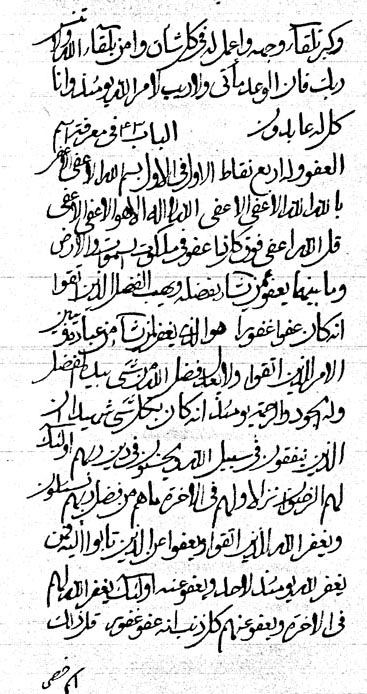 وكبر تلقآء وجهه واعمل له في كل شان وامن بلقآء الله ولا تنس
ربك فان الوعد يأتي ولا ريب الامر لله يومئذ وانا
كل له عابدون الباب ٤٣ في معرفة اسم
العفو وله اربع نقاط الاول في الاول بسم الله الاعفى الاعفى
بالله الله الاعفى الاعفى الله لا اله الا هو الاعفى الاعفى
قل الله اعفى فوق كل ذا عفو في ملكوت السموات والارض
وما بينهما يعفو عمن يشاء بفضله ويهب الفضل للذين اتقوا
انه كان عفوا غفورا هو الذي يغفر لمن يشآء من عباده
الامر للذين اتقوا فضل الله من شيء بيده الفضل
وله الجود والرحمة يومئذ انه كان بكل شيء شهيدا ان
الذين ينفقون في سبيل الله في دين ربهم اولئك
لهم الرضوان نزلا ولهم في الاخرة ما هم من فضل ربهم يسئلون
ويغفر الله للذين اتقوا ويعفوا عن الذين تابوا اليه ومن
يغفر الله يومئذ لاحد ويعفو عنه اولئك يغفر الله لهم
في الاخرة ويعفو عنهم كل ذنب انه عفو غفور قل ذلك